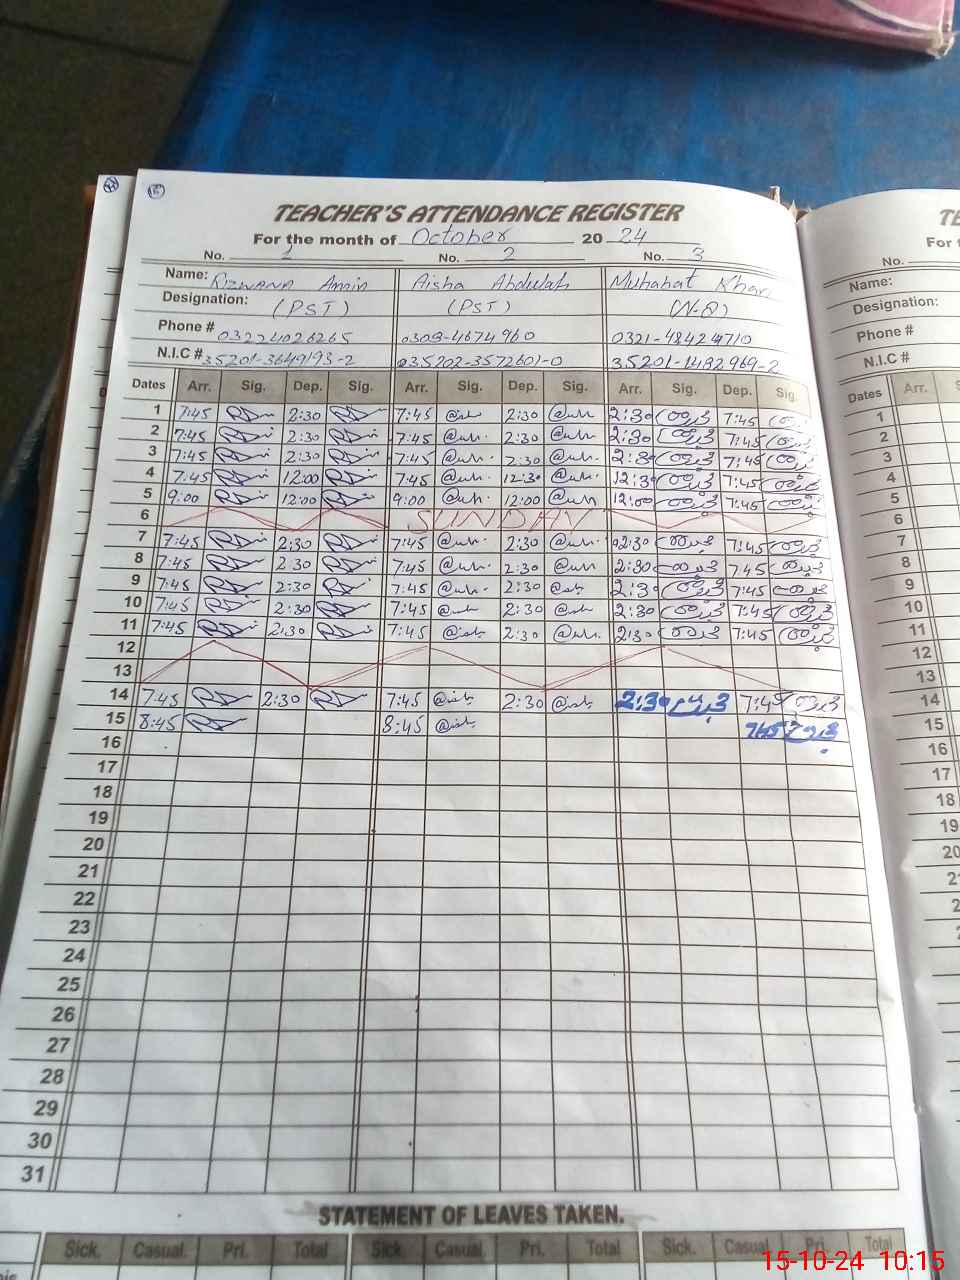 TEACHER'S ATTENDANCE REGISTER
For the month of October 20 24
No. 1 No. 2 No. 3
Name: Rizwana Amin Aisha Abdulah Muhabat Khan
Designation: (PST) (PST) (N.Q)
Phone # 03224026265 0309-4674960 0321-48424710
N.I.C # 35201-3649193-2 035202-3572601-0 35201-1482969-2
Dates Arr. Sig. Dep. Sig. Arr. Sig. Dep. Sig. Arr. Sig. Dep. Sig.
1 7:45 2:30 7:45 2:30 2:30 7:45
2 7:45 2:30 7:45 2:30 2:30 7:45
3 7:45 2:30 7:45 2:30 2:30 7:45
4 7:45 12:00 7:45 12:30 12:30 7:45
5 9:00 12:00 9:00 12:00 12:00 7:45
6 SUNDAY
7 7:45 2:30 7:45 2:30 02:30 7:45
8 7:45 2:30 7:45 2:30 2:30 7:45
9 7:45 2:30 7:45 2:30 2:30 7:45
10 7:45 2:30 7:45 2:30 2:30 7:45
11 7:45 2:30 7:45 2:30 2:30 7:45
12
13
14 7:45 2:30 7:45 2:30 2:30 7:45
15 8:45 8:45 7:45
16
17
18
19
20
21
22
23
24
25
26
27
28
29
30
31
STATEMENT OF LEAVES TAKEN.
Sick. Casual. Pri. Total Sick. Casual. Pri. Total Sick. Casual Pri. Total
TE
For t
No.
Name:
Designation:
Phone #
N.I.C #
Dates Arr. S
1
2
3
4
5
6
7
8
9
10
11
12
13
14
15
16
17
18
19
20
15-10-24 10:15